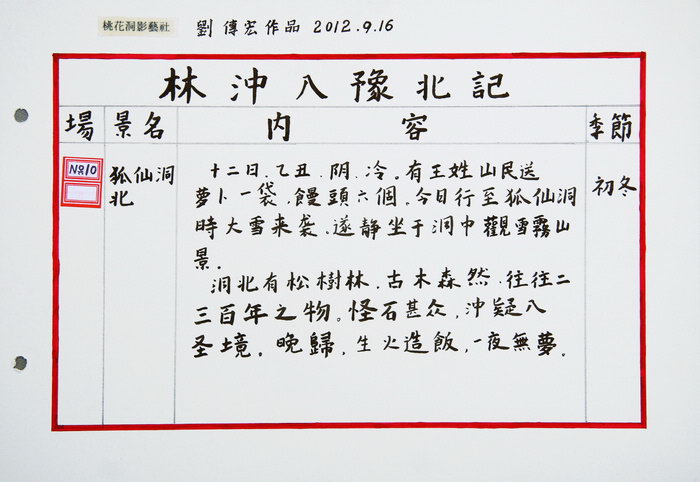 桃花洞影藝社 劉傳宏作品 2012.9.16
林沖八豫北記
場 景名 内容 季節
NO.10
狐仙洞
北
十二日.乙丑.阴.冷.有王姓山民送
萝卜一袋.饅頭六個.今日行至狐仙洞
時大雪来袭.遂静坐于洞中觀雪霧山
景.
洞北有松樹林.古木森然.往往二
三百年之物。怪石甚众.沖疑八
圣境.晚歸.生火造飯,一夜無夢。
初冬